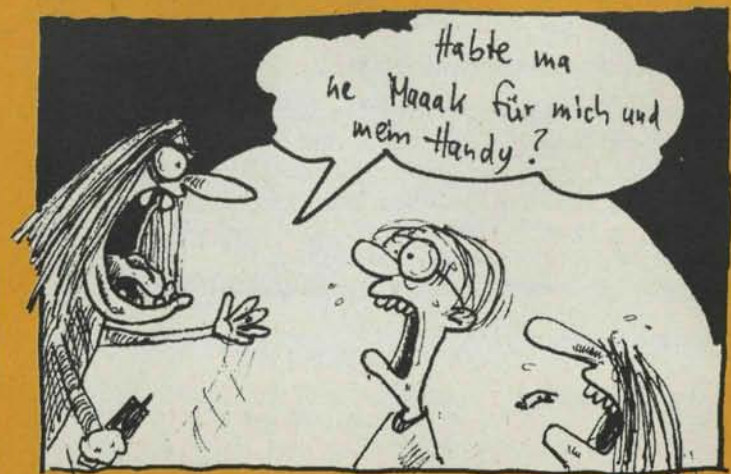 Habte ma
ne Maaak für mich und
mein Handy?